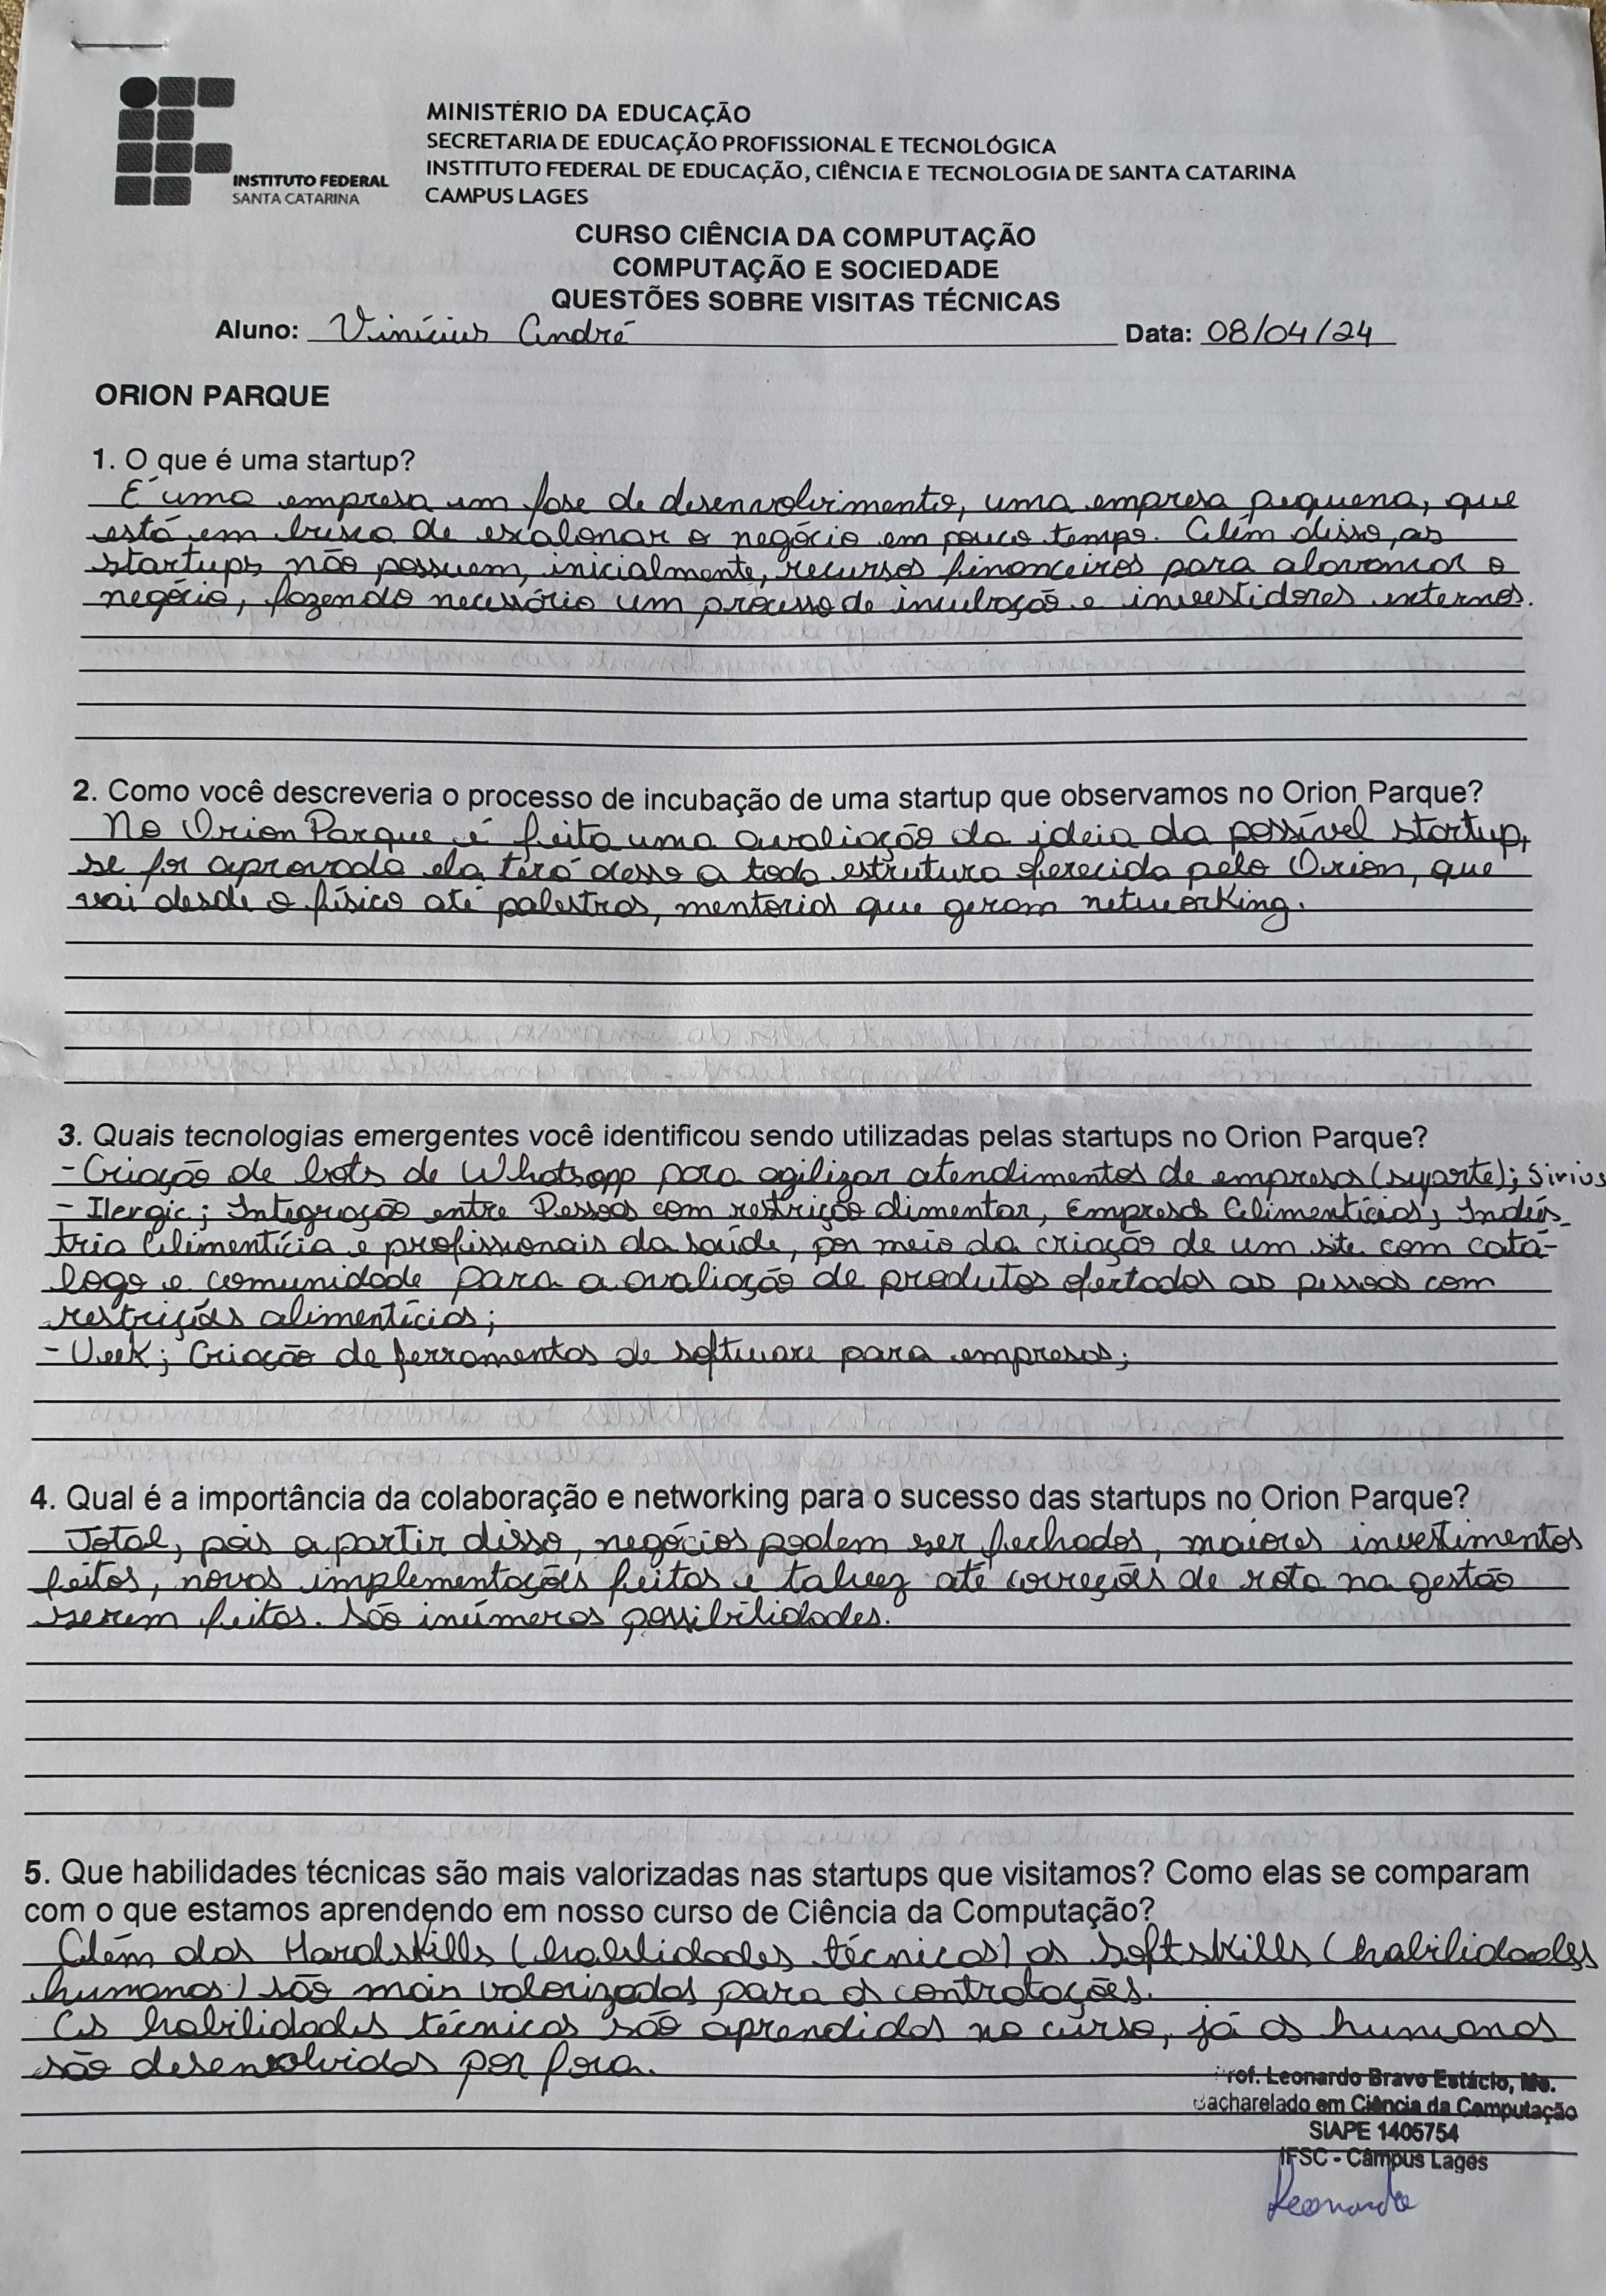 INSTITUTO FEDERAL
SANTA CATARINA
MINISTÉRIO DA EDUCAÇÃO
SECRETARIA DE EDUCAÇÃO PROFISSIONAL E TECNOLÓGICA
INSTITUTO FEDERAL DE EDUCAÇÃO, CIÊNCIA E TECNOLOGIA DE SANTA CATARINA
CAMPUS LAGES
CURSO CIÊNCIA DA COMPUTAÇÃO
COMPUTAÇÃO E SOCIEDADE
QUESTÕES SOBRE VISITAS TÉCNICAS
Aluno: Vinícius André Data: 08/04/24
ORION PARQUE
1. O que é uma startup?
É uma empresa em fase de desenvolvimento, uma empresa pequena, que
está em busca de escalonar o negócio em pouco tempo. Além disso, as
startups não possuem, inicialmente, recursos financeiros para alavancar o
negócio, fazendo necessário um processo de incubação e investidores externos.
2. Como você descreveria o processo de incubação de uma startup que observamos no Orion Parque?
No Orion Parque é feita uma avaliação da ideia da possível startup,
se for aprovada ela terá acesso a toda estrutura oferecida pelo Orion, que
vai desde o físico até palestras, mentorias que geram networking.
3. Quais tecnologias emergentes você identificou sendo utilizadas pelas startups no Orion Parque?
- Criação de bots de Whatsapp para agilizar atendimentos de empresa (suporte); Sirius
- Ilergic; Integração entre Pessoas com restrição alimentar, Empresas Alimentícias, Indús-
tria Alimentícia e profissionais da saúde, por meio da criação de um site com catá-
logo e comunidade para a avaliação de produtos ofertados as pessoas com
restrições alimentícias;
- Ueek; Criação de ferramentas de software para empresas;
4. Qual é a importância da colaboração e networking para o sucesso das startups no Orion Parque?
Total, pois a partir disso, negócios podem ser fechados, maiores investimentos
feitos, novas implementações feitas e talvez até correções de rota na gestão
serem feitas. São inúmeras possibilidades.
5. Que habilidades técnicas são mais valorizadas nas startups que visitamos? Como elas se comparam
com o que estamos aprendendo em nosso curso de Ciência da Computação?
Além das Hardskills (habilidades técnicas) as Softskills (habilidades
humanas) são mais valorizadas para as contratações.
As habilidades técnicas são aprendidas no curso, já as humanas
são desenvolvidas por fora.
Prof. Leonardo Bravo Estácio, Me.
Bacharelado em Ciência da Computação
SIAPE 1405754
IFSC - Câmpus Lages
Leonardo